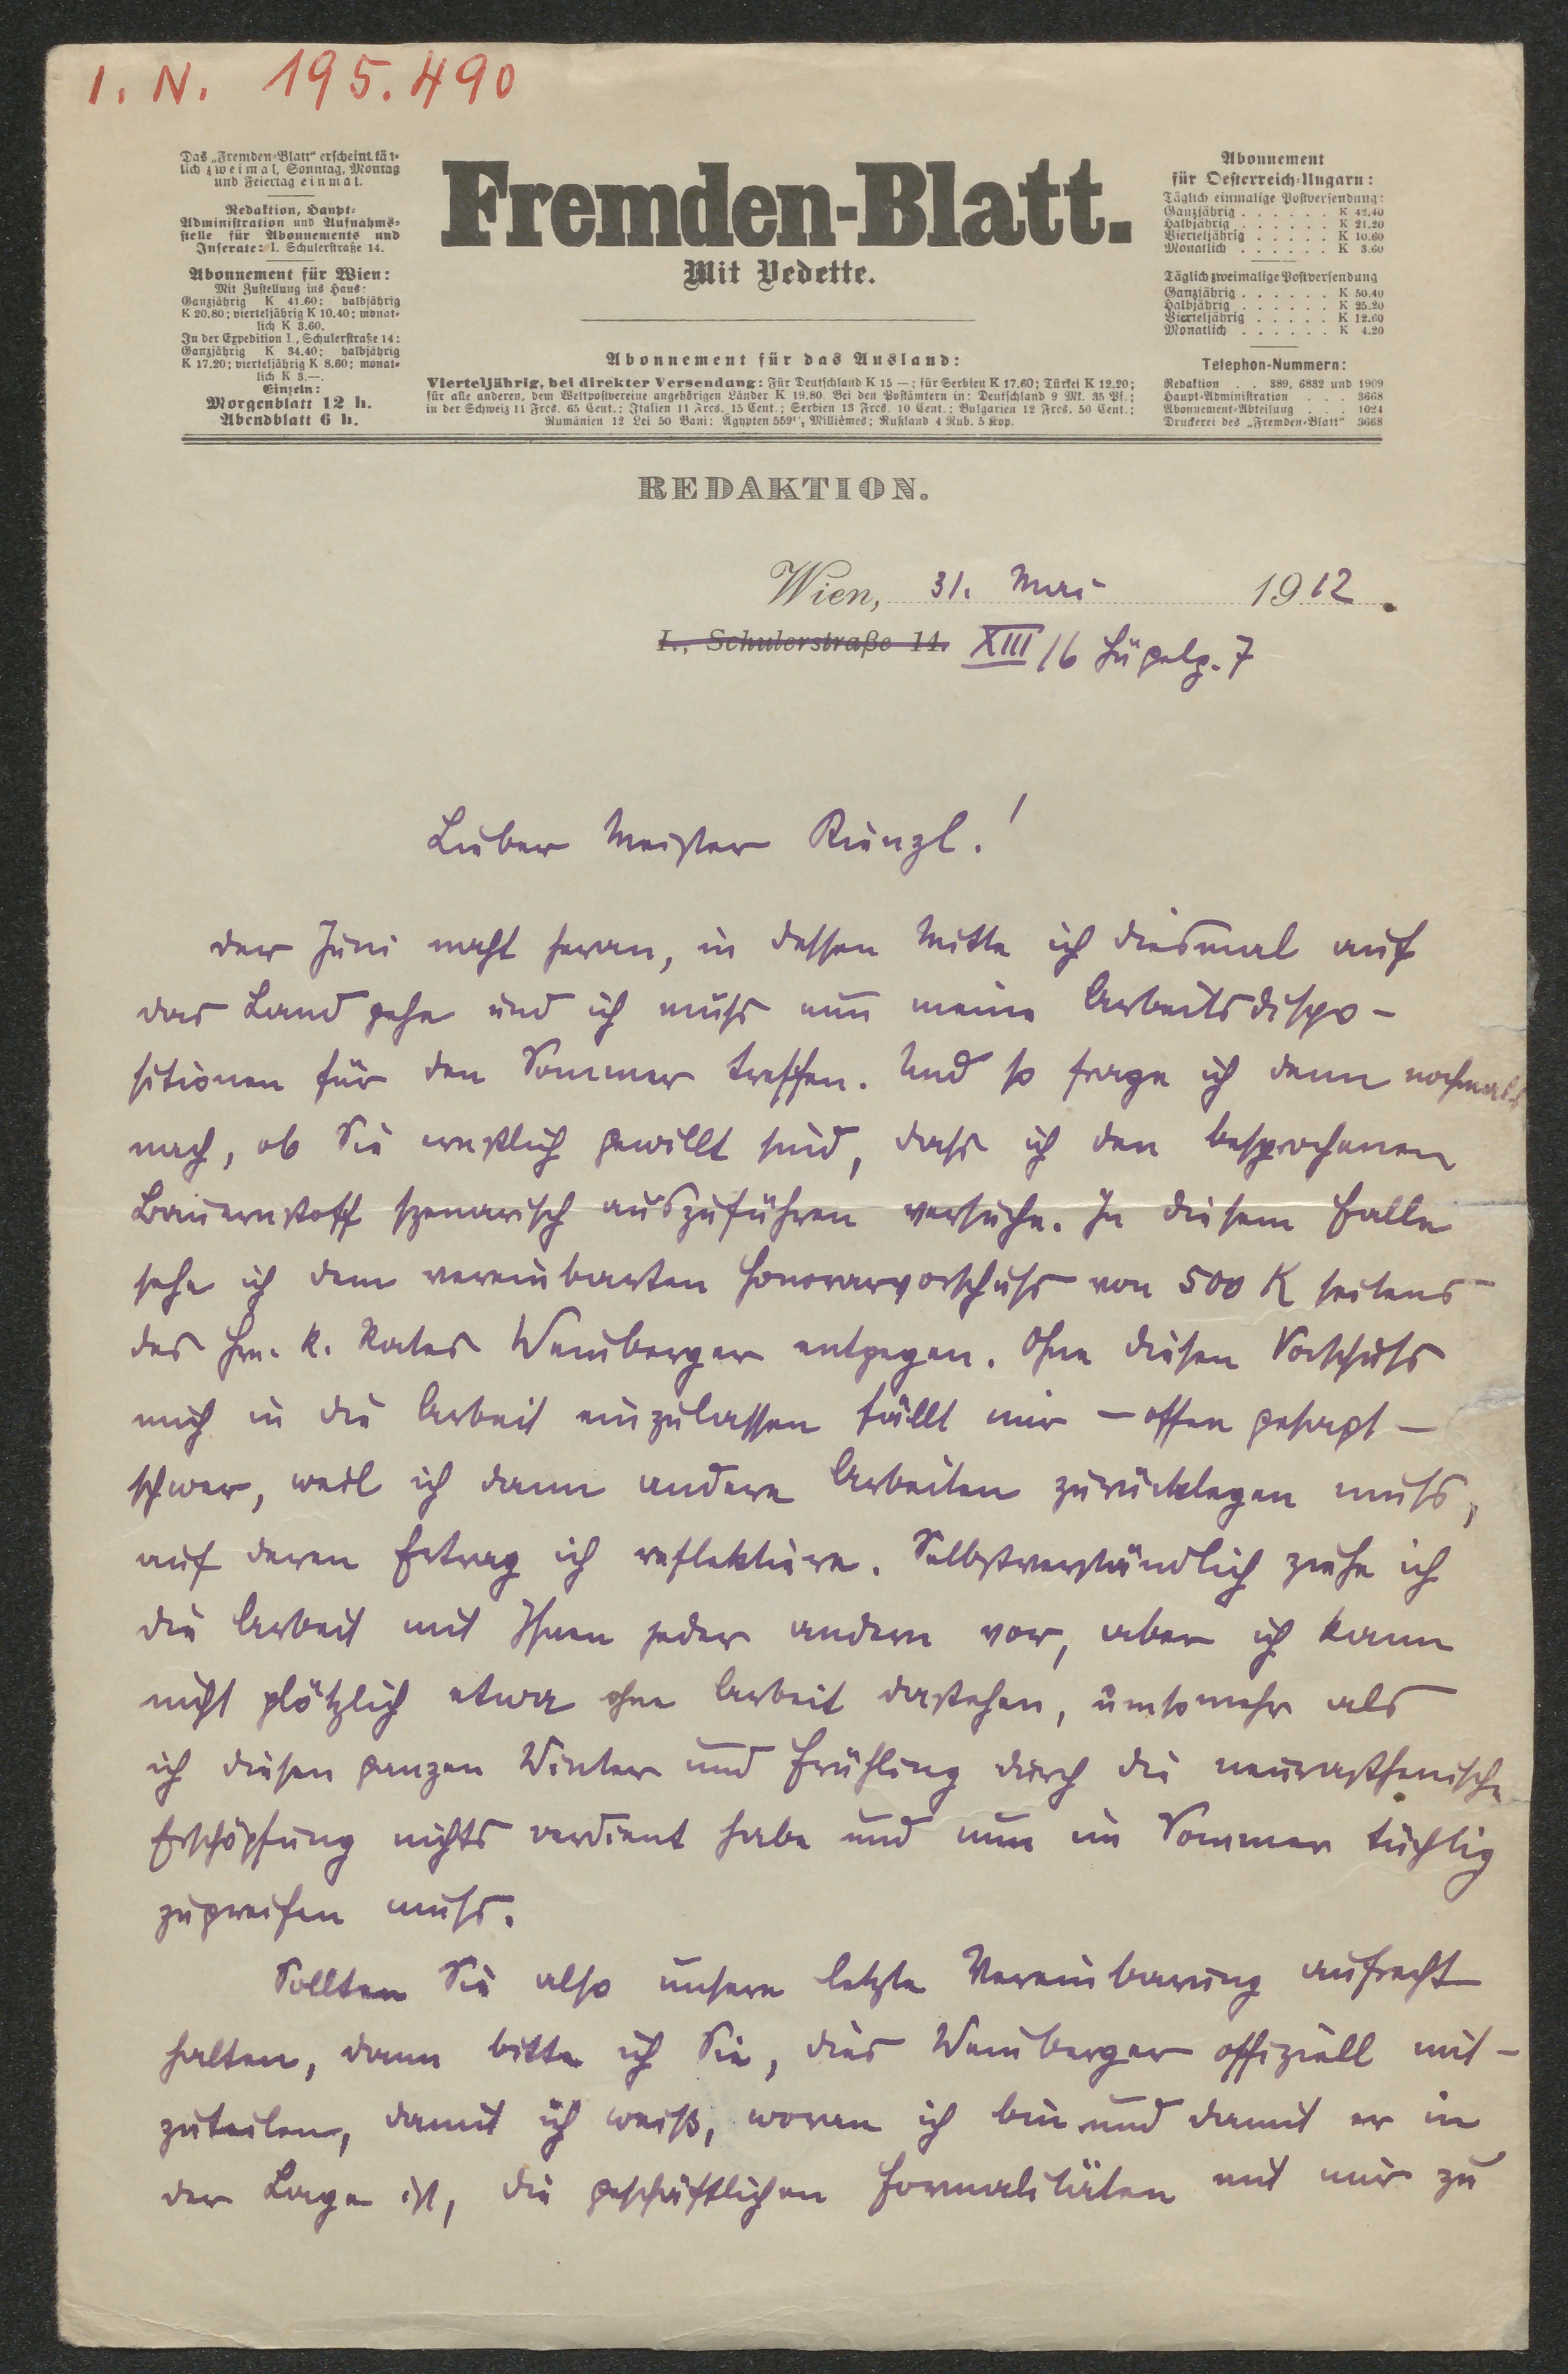 I. N. 195.490
Das „Fremden-Blatt“ erscheint täg-
lich zweimal, Sonntag, Montag
und Feiertag einmal.
Redaktion, Haupt-
Administration und Aufnahms-
stelle für Abonnements und
Inserate: I. Schulerstraße 14.
Abonnement für Wien:
Mit Zustellung ins Haus:
Ganzjährig K 41.60; halbjährig
K 20.80; vierteljährig K 10.40; monat-
lich K 3.60.
In der Expedition I., Schulerstraße 14:
Ganzjährig K 34.40; halbjährig
K 17.20; vierteljährig K 8.60; monat-
lich K 3.—.
Einzeln:
Morgenblatt 12 h.
Abendblatt 6 h.
Fremden-Blatt.
Mit Vedette.
Abonnement für das Ausland:
Vierteljährig, bei direkter Versendung: Für Deutschland K 15 —; für Serbien K 17.60; Türkei K 12.20;
für alle anderen, dem Weltpostvereine angehörigen Länder K 19.80. Bei den Postämtern in: Deutschland 9 Mk. 35 Pf.;
in der Schweiz 11 Frcs. 65 Cent.; Italien 11 Frcs. 15 Cent.; Serbien 13 Frcs. 10 Cent.; Bulgarien 12 Frcs. 50 Cent.;
Rumänien 12 Lei 50 Bani; Ägypten Millièmes; Rußland 4 Rub. 5 Kop.
Abonnement
für Oesterreich-Ungarn:
Täglich einmalige Postversendung:
Ganzjährig . . . . . . K 42.40
Halbjährig . . . . . . K 21.20
Vierteljährig . . . . . K 10.60
Monatlich . . . . . . K 3.60
Täglich zweimalige Postversendung
Ganzjährig . . . . . . K 50.40
Halbjährig . . . . . . K 25.20
Vierteljährig . . . . . K 12.60
Monatlich . . . . . . K 4.20
Telephon-Nummern:
Redaktion . . 389, 6832 und 1909
Haupt-Administration . . . 3668
Abonnement-Abteilung . . . 1024
Druckerei des „Fremden-Blatt“ 3668
REDAKTION.
Wien, 31. Mai 1912.
I., Schulerstraße 14. XIII/6 Hügelg. 7
Lieber Meister Kienzl!
der Juni naht heran, in dessen Mitte ich diesmal auf
das Land gehe und ich muss nun meine Arbeitsdispo-
sitionen für den Sommer treffen. Und so frage ich denn nochmals
nach, ob Sie ernstlich gewillt sind, dass ich den besprochenen
Bauernstoff szenarisch auszuführen versuche. In diesem Falle
sehe ich dem vereinbarten Honorarvorschuss von 500 K seitens
des Hrn. k. Rates Weinberger entgegen. Ohne diesen Vorschuss
mich in die Arbeit einzulassen fällt mir – offen gesagt –
schwer, weil ich dann andere Arbeiten zurücklegen muss,
auf deren Ertrag ich reflektiere. Selbstverständlich ziehe ich
die Arbeit mit Ihnen jeder andern vor, aber ich kann
nicht plötzlich etwa ohne Arbeit dastehen, umsomehr als
ich diesen ganzen Winter und Frühling durch die neurasthenische
Erschöpfung nichts verdient habe und nun im Sommer tüchtig
zugreifen muss.
Sollten Sie also unsere letzte Vereinbarung aufrecht
halten, dann bitte ich Sie, dies Weinberger offiziell mit-
zuteilen, damit ich weiß, woran ich bin und damit er in
der Lage ist, die geschäftlichen Formalitäten mit mir zu